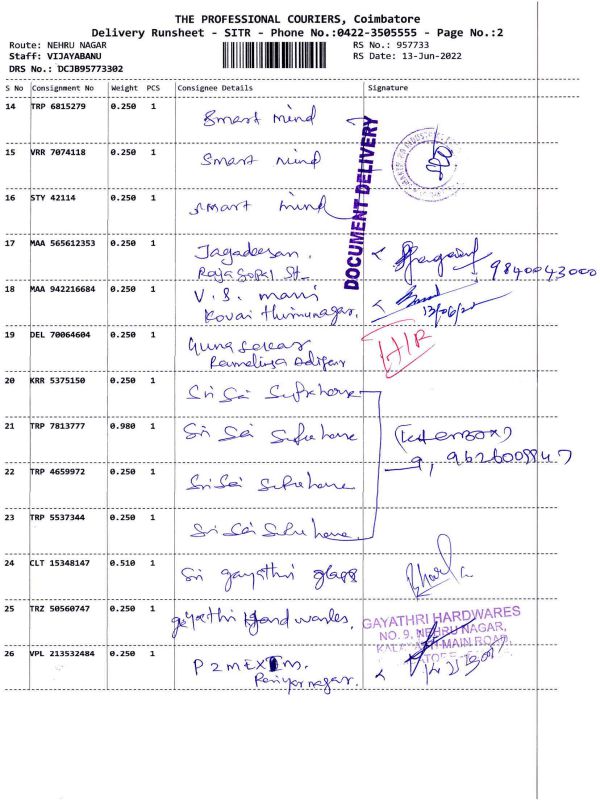 THE PROFESSIONAL COURIERS, Coimbatore
Delivery Runsheet - SITR - Phone No.:0422-3505555 - Page No.:2
Route: NEHRU NAGAR RS No.: 957733
Staff: VIJAYABANU RS Date: 13-Jun-2022
DRS No.: DCJB95773302
S No Consignment No Weight PCS Consignee Details Signature
14 TRP 6815279 0.250 1 Smart mind
15 VRR 7074118 0.250 1 Smart mind
16 STY 42114 0.250 1 Smart mind
DOCUMENT DELIVERY
17 MAA 565612353 0.250 1 Jagadeesan.
Raja Gopal St 9840043000
18 MAA 942216684 0.250 1 V.S. mani
Kovai thirunagar. 13/06/22
19 DEL 70064604 0.250 1 Gunasekar
20 KRR 5375150 0.250 1 Sri Sai
21 TRP 7813777 0.980 1 Sri Sai (Letter Box)
22 TRP 4659972 0.250 1 Sri Sai
23 TRP 5537344 0.250 1 Sri Sai
24 CLT 15348147 0.510 1 Sri gayathri glass
25 TRZ 50560747 0.250 1 gayathri Hardwares.
GAYATHRI HARDWARES
NO. 9, NEHRU NAGAR,
MAIN ROAD,
26 VPL 213532484 0.250 1
Periyar nagar.